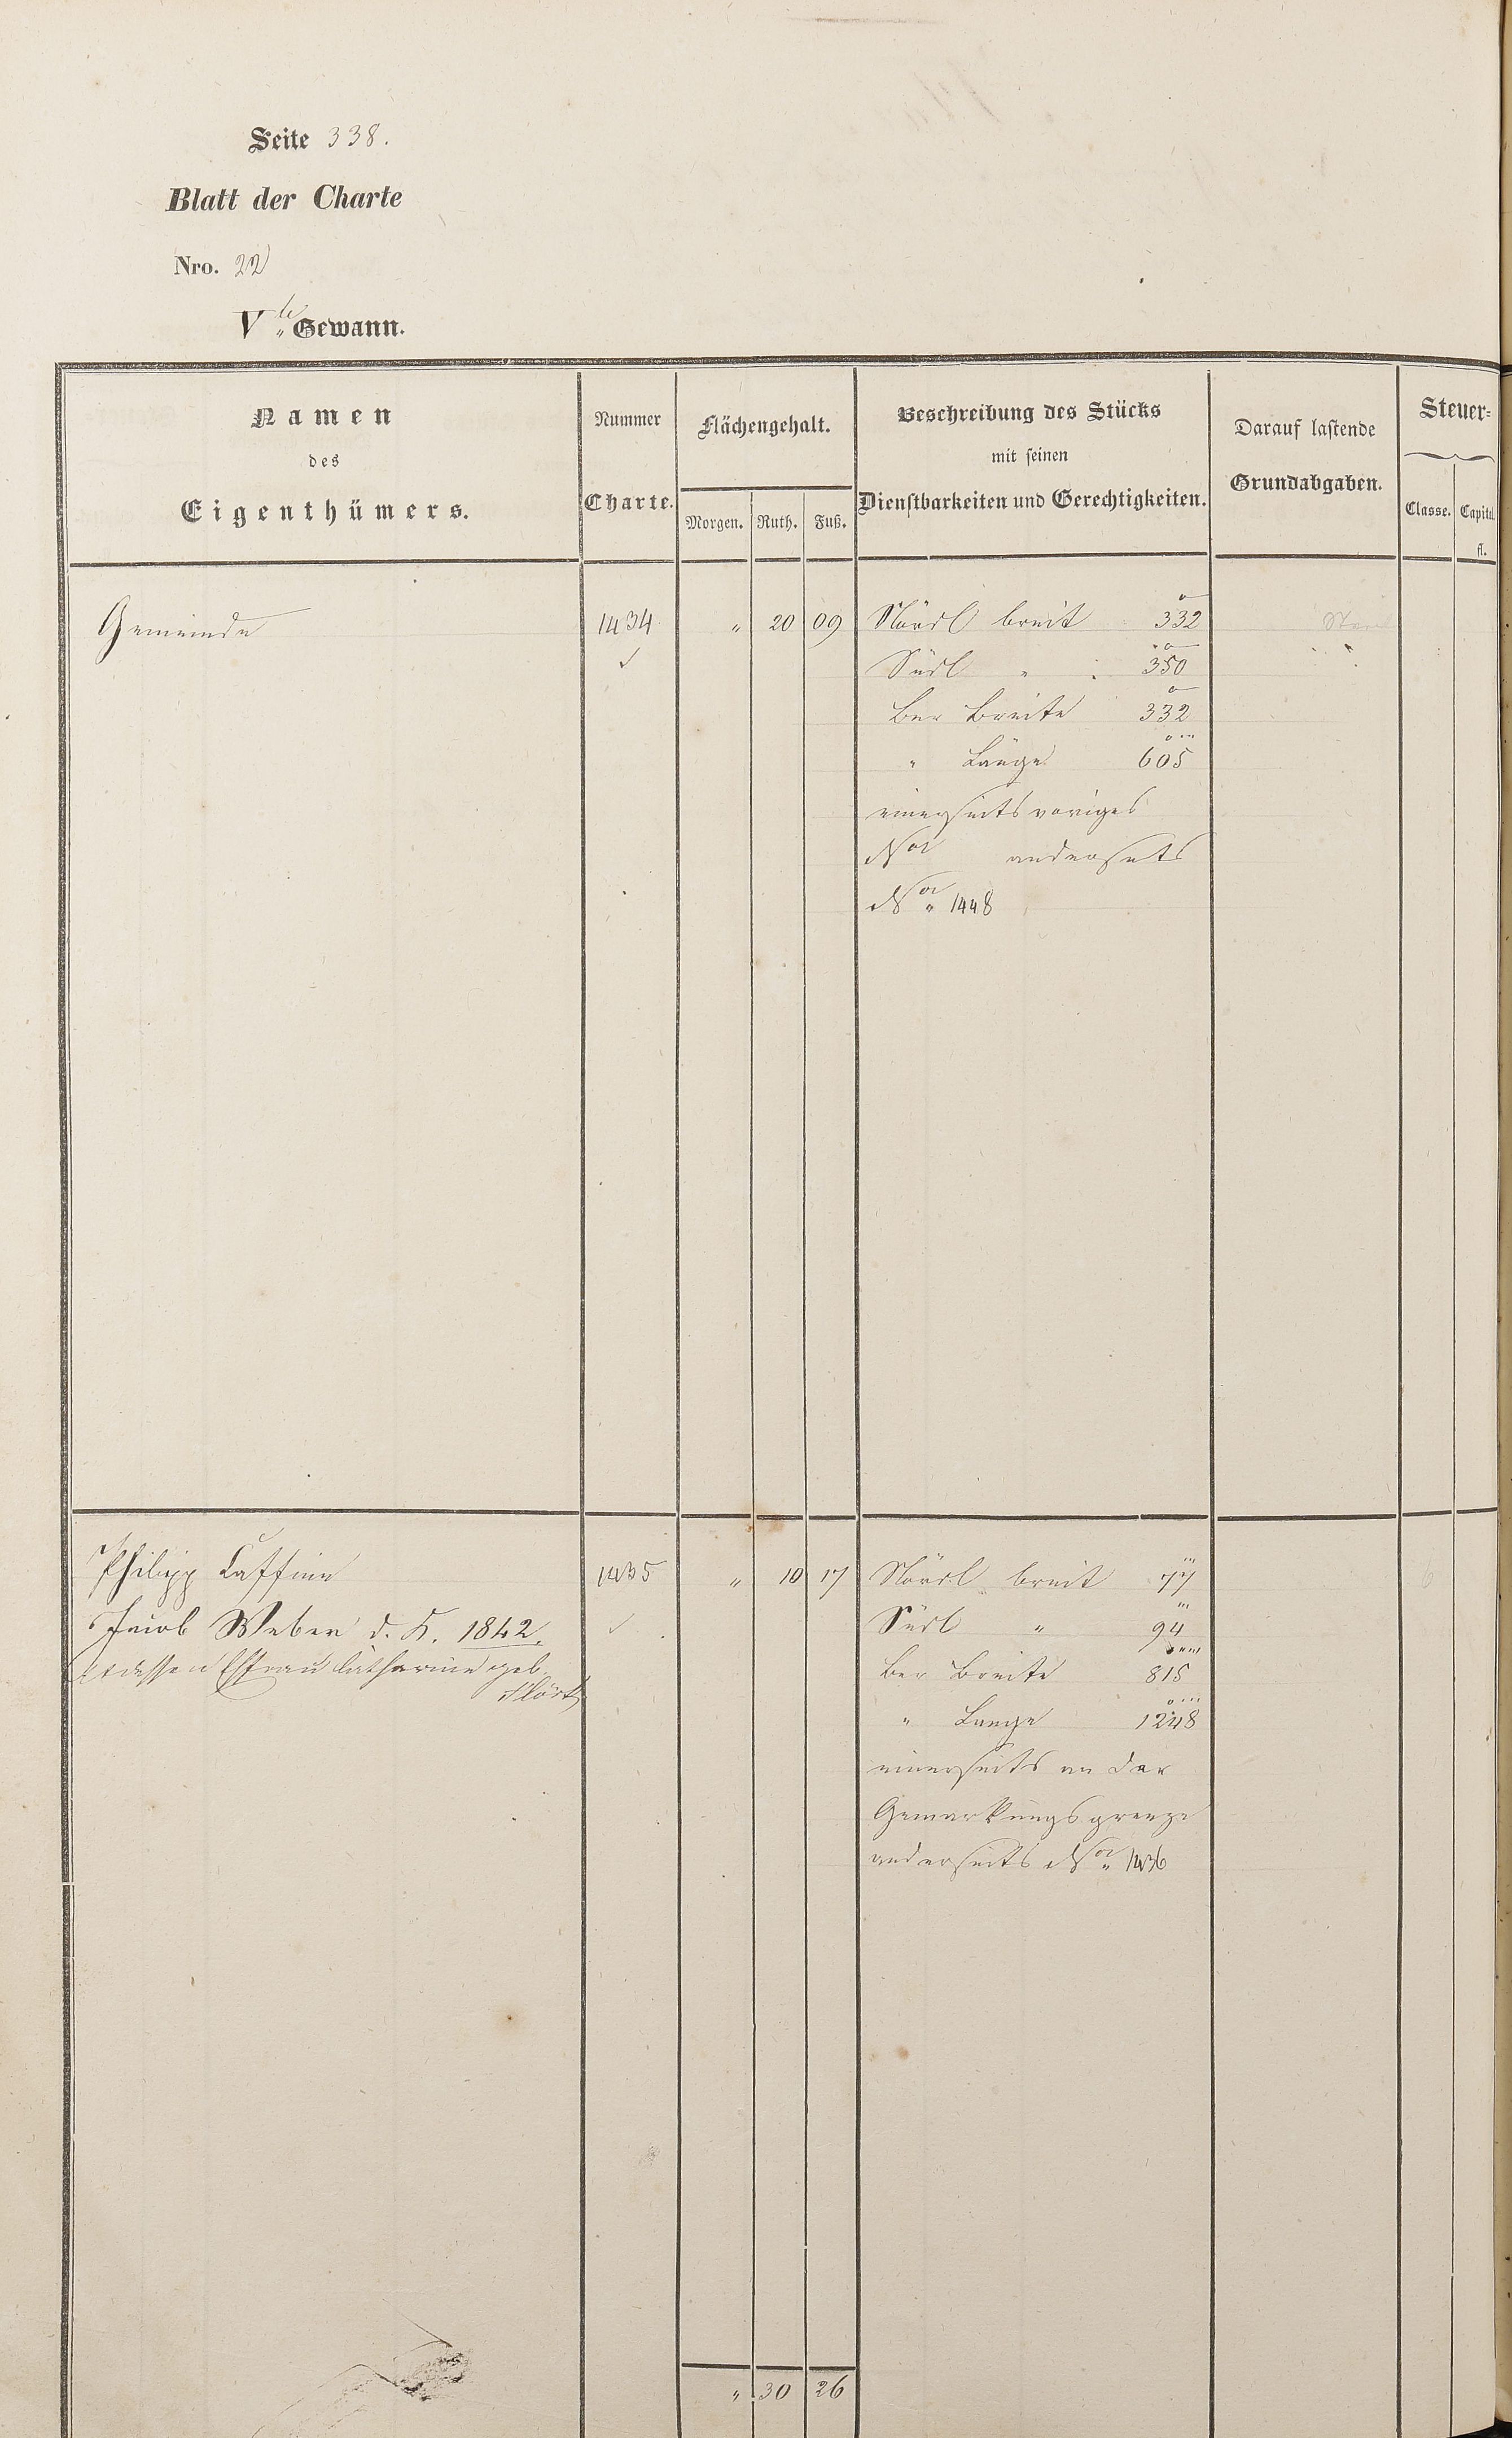 Seite 338.
Blatt der Charte
Nro. 22
V te Gewann.
Namen
des
Eigenthümers.
Nummer
Charte.
Flächengehalt.
Morgen. Ruth. Fuß.
Beschreibung des Stücks
mit seinen
Dienstbarkeiten und Gerechtigkeiten.
Darauf lastende
Grundabgaben.
Steuer=
Classe. Capital.
fl.
Gemeinde 1434 " 20 09 Nördl breit 332
Südl " 350
Ber Breite 332
" Länge 605
einerseits voriges
Nor anderseits
Nor 1448
Philipp Laffine 1435 " 10 17 Nördl breit 77
Jacob Weber d. K. 1842. Südl " 94
et dessen Ehfrau Catharine geb. Ber Breite 815
" Länge 1248
einerseits an der
Gemarkungsgrenze
anderseits Nor 1436
" 30 26